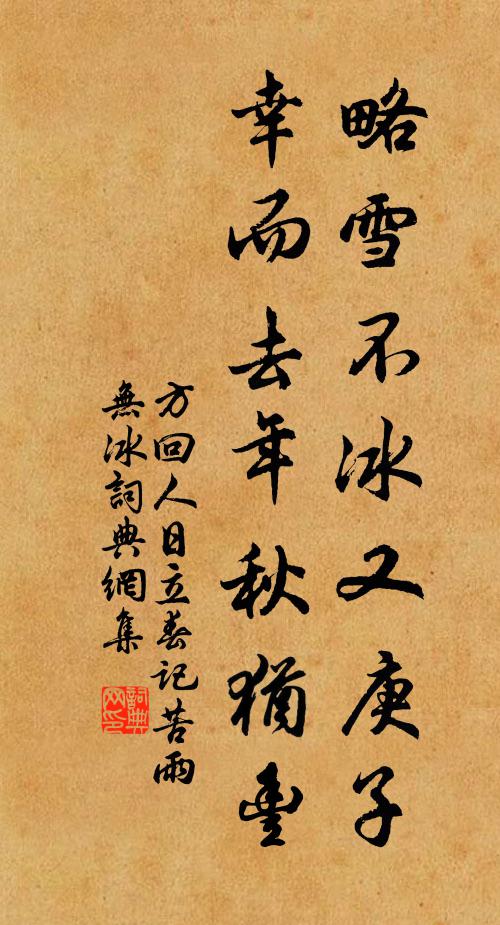 略雪不冰又庚子
幸而去年秋猶豐
方回人日立春記苦雨
無冰詞典網集
詞典
网印